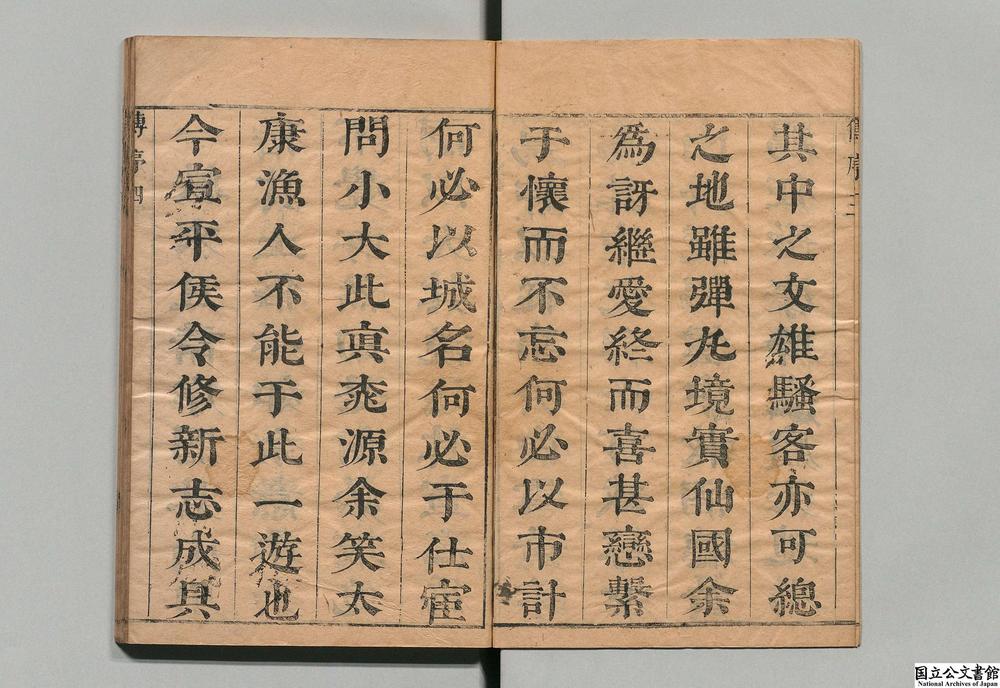 其中之文雄騷客亦可總
之地雖彈丸境實仙國余
為訝繼愛終而喜甚戀繫
于懷而不忘何必以市計
何必以城名何必于仕宦
問小大此眞桃源余笑太
康漁人不能于此一遊也
今宣平侯令修新志成具
國立公文書館
National Archives of Japan